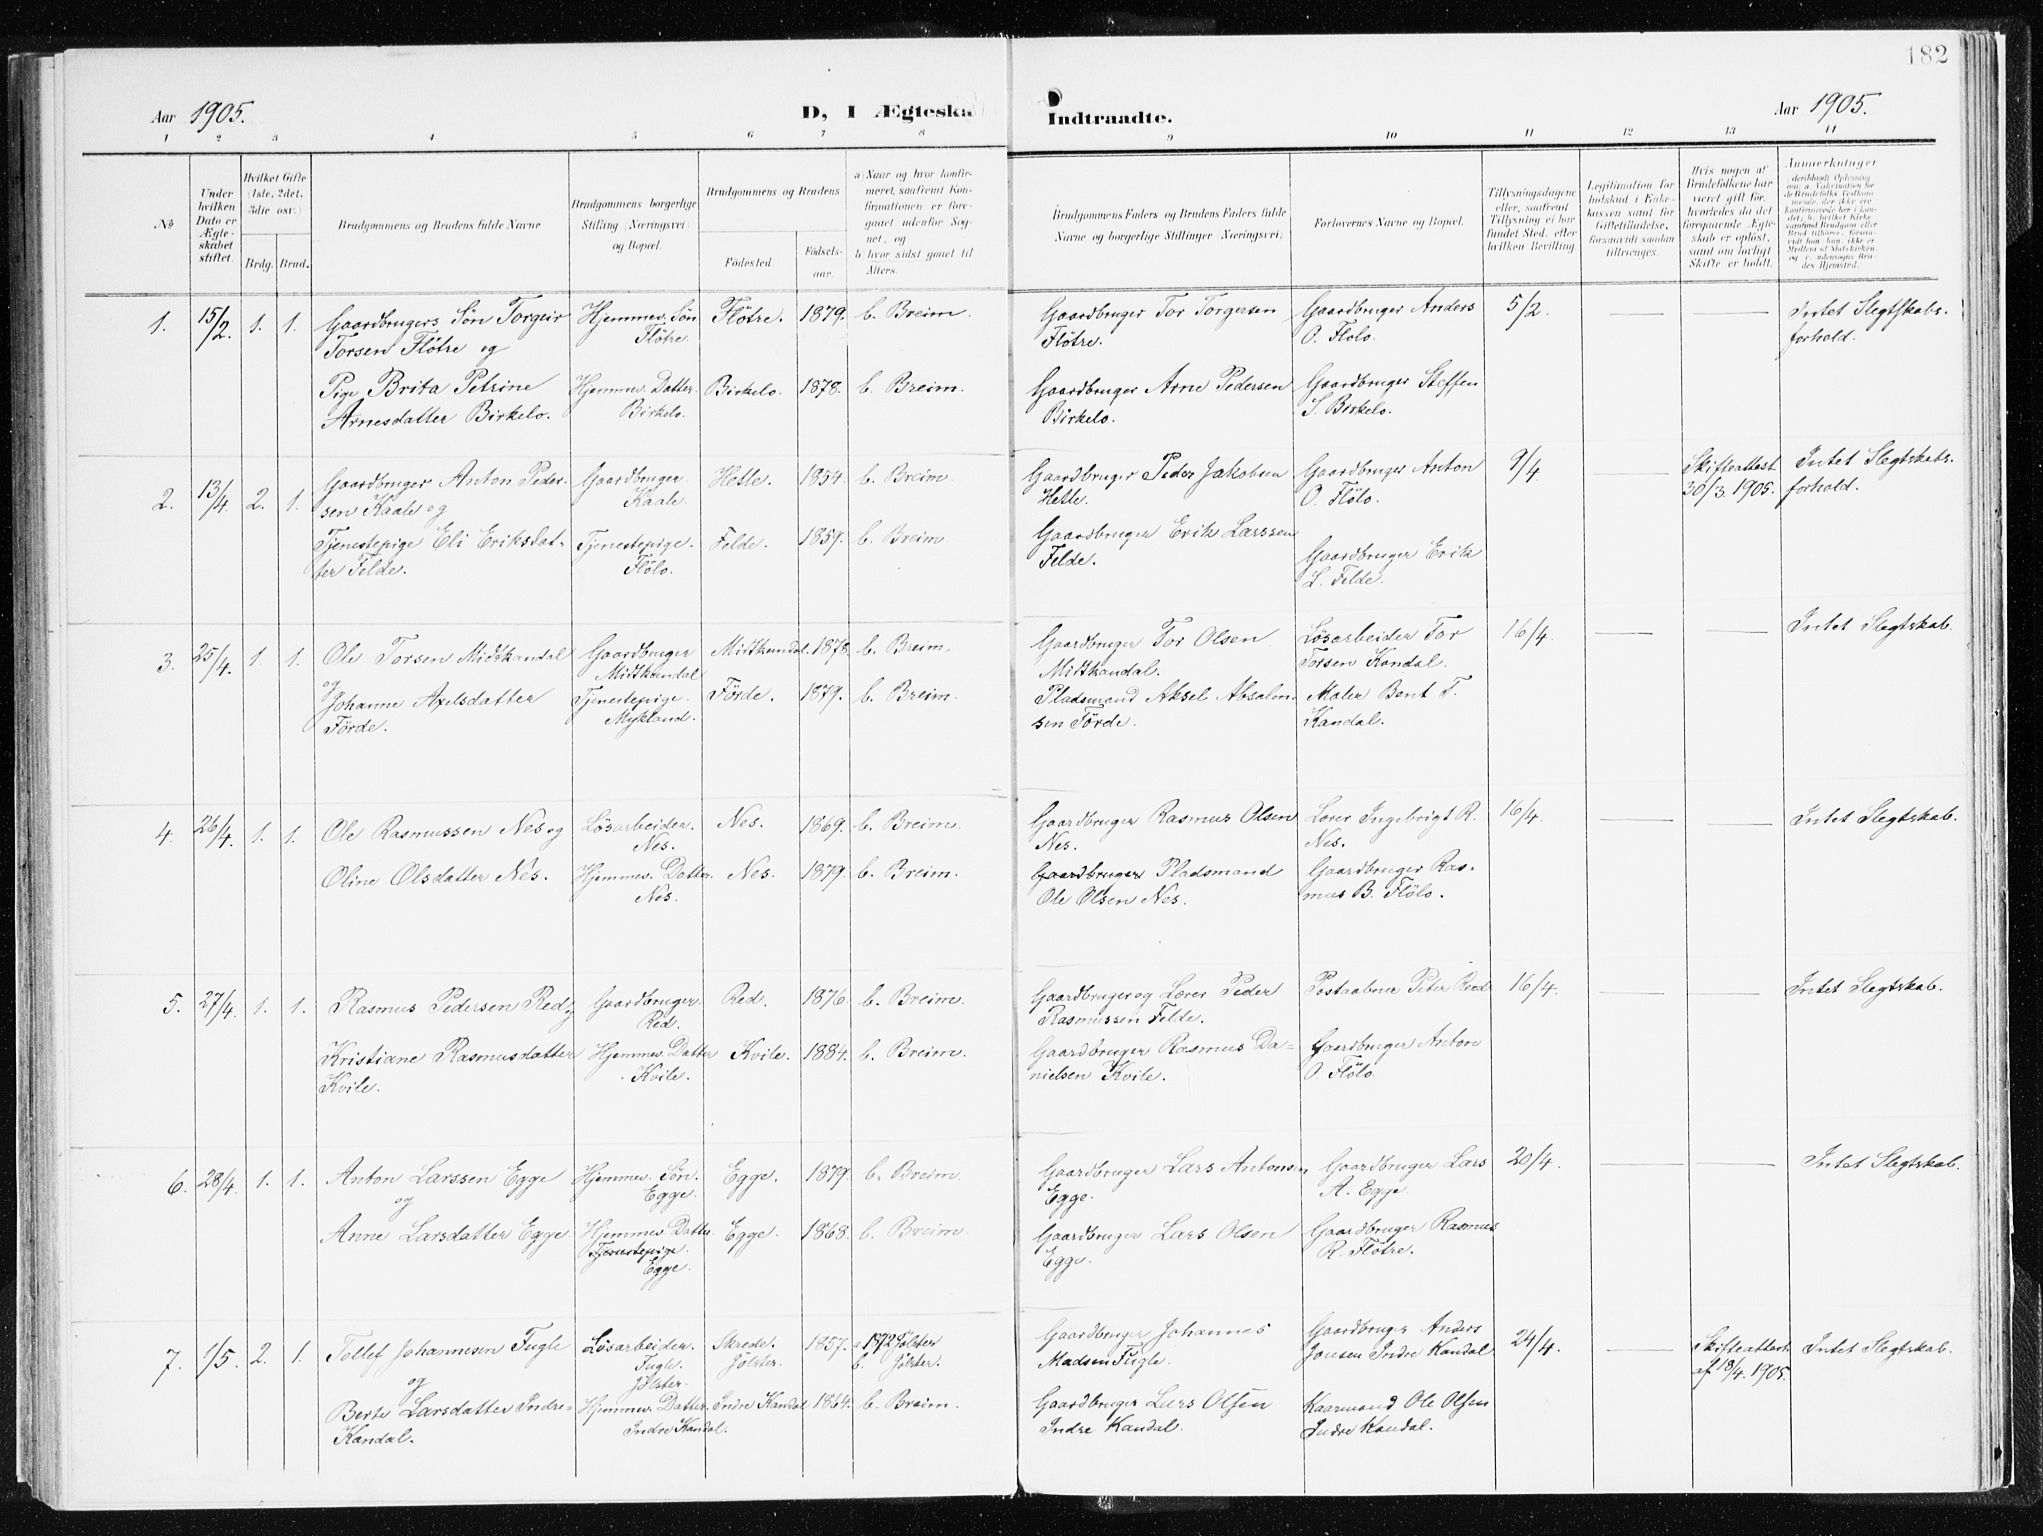 182
Aar 1905.
D, I Ægteska
Indtraadte.
Aar 1905.
1 2 3 4 5 6 7 8
9 10 11 12 13 14
No
Under hvilken Dato er Ægteskabet stiftet.
Hvilket Gifte (1ste, 2det, 3die osv.)
Brdg. Brud.
Brudgommens og Brudens fulde Navne
Brudgommens borgerlige Stilling (Næringsvei) og Bopæl.
Brudgommens og Brudens
Fødested.
Fødselsaar.
a) Naar og hvor konfirmeret, saafremt Konfirmationen er foregaaet udenfor Sognet, og
b) hvor sidst gaaet til Alters.
Brudgommens Faders og Brudens Faders fulde Navne og borgerlige Stillinger (Næringsvei).
Forlovernes Navne og Bopæl.
Tillysningsdagene eller, saafremt Tillysning ei har fundet Sted, efter hvilken Bevilling.
Legitimation for Indskud i Enkekassen samt for Giftetilladelse, forsaavidt saadan tiltrænges.
Hvis nogen af Brudefolkene har været gift før, hvorledes da det foregaaende Ægteskab er opløst, samt om lovligt Skifte er holdt.
Anmærkninger
1. 15/2. 1. 1. Gaardbrugers Søn Torgeir Hjemmev. Søn Flötre. 1879. b. Breim.
Torsen Flötre og Flötre.
Pige Brita Petrine Hjemmev. Datter. Birkelo. 1878. b. Breim.
Arnesdatter Birkelo. Birkelo.
Gaardbruger Tor Torgersen Gaardbruger Anders 5/2. Intet Slegtskabs-
Flötre. O. Flölo. forhold.
Gaardbruger Arne Pedersen Gaardbruger Steffen
Birkelo. S. Birkelo.
2. 13/4. 2. 1. Gaardbruger Anton Peder- Gaardbruger Hetle. 1854. b. Breim.
sen Kaale og Kaale.
Tjenestepige Eli Eriksdat- Tjenestepige. Felde. 1859. b. Breim.
ter Felde. Flölo.
Gaardbruger Peder Jakobsen Gaardbruger Anton 9/4 Skifteattest Intet Slegtskabs-
Hetle. O. Flölo. 30/3. 1905. forhold.
Gaardbruger Erik Larssen Gaardbruger Erik
Felde. L. Felde.
3. 25/4. 1. 1. Ole Torsen Midtkandal Gaardbruger Midtkandal. 1878. b. Breim.
og Midtkandal
Johanne Axelsdatter Tjenestepige. Förde. 1879. b. Breim.
Förde. Mykland.
Gaardbruger Tor Olsen Lösarbeider Tor 16/4. Intet Slegtskab.
Midtkandal. Torsen Kandal.
Pladsmand Aksel Absalon- Maler Bent T.
sen Förde. Kandal.
4. 26/4. 1. 1. Ole Rasmussen Nes og Lösarbeider. Nes. 1869. b. Breim.
Nes.
Oline Olsdatter Nes. Hjemmev. Datter. Nes. 1879. b. Breim.
Nes.
Gaardbruger Rasmus Olsen Lærer Ingebrigt R. 16/4. Intet Slegtskab.
Nes. Nes.
Gaardbruger Pladsmand Gaardbruger Ras-
Ole Olsen Nes. mus B. Flölo.
5. 27/4. 1. 1. Rasmus Pedersen Red og Gaardbruger. Red. 1876. b. Breim.
Red.
Kristiane Rasmusdatter Hjemmev. Datter Kvile. 1884. b. Breim.
Kvile. Kvile.
Gaardbruger og Lærer Peder Postaabner Peter Red 16/4. Intet Slegtskab.
Rasmussen Felde.
Gaardbruger Rasmus Da- Gaardbruger Anton
nielsen Kvile. O. Flölo
6. 28/4. 1. 1. Anton Larssen Egge Hjemmev. Søn. Egge. 1879. b. Breim.
og Egge.
Anne Larsdatter Egge Hjemmev. Datter. Egge. 1868. b. Breim.
Tjenestepige.
Egge.
Gaardbruger Lars Antonsen Gaardbruger Lars 20/4. Intet Slegtskab.
Egge. A. Egge.
Gaardbruger Lars Olsen Gaardbruger Rasmus
Egge. R. Flötre.
7. 1/5. 2. 1. Tollef Johannesen Fugle Lösarbeider. Skrede. 1857. a. 1872 Jölster
og Fugle. Jölster. b. Jölster.
Jölster.
Berte Larsdatter Indre- Hjemmev. Datter. Indre Kandal 1864. b. Breim.
Kandal. Indre Kandal.
Gaardbruger Johannes Gaardbruger Anders 24/4. Skifteattest Intet Slegtskab.
Madsen Fugle. Jonsen Indre Kandal af 18/4. 1905.
Gaardbruger Lars Olsen Kaarmand Ole Olsen
Indre Kandal. Indre Kandal.